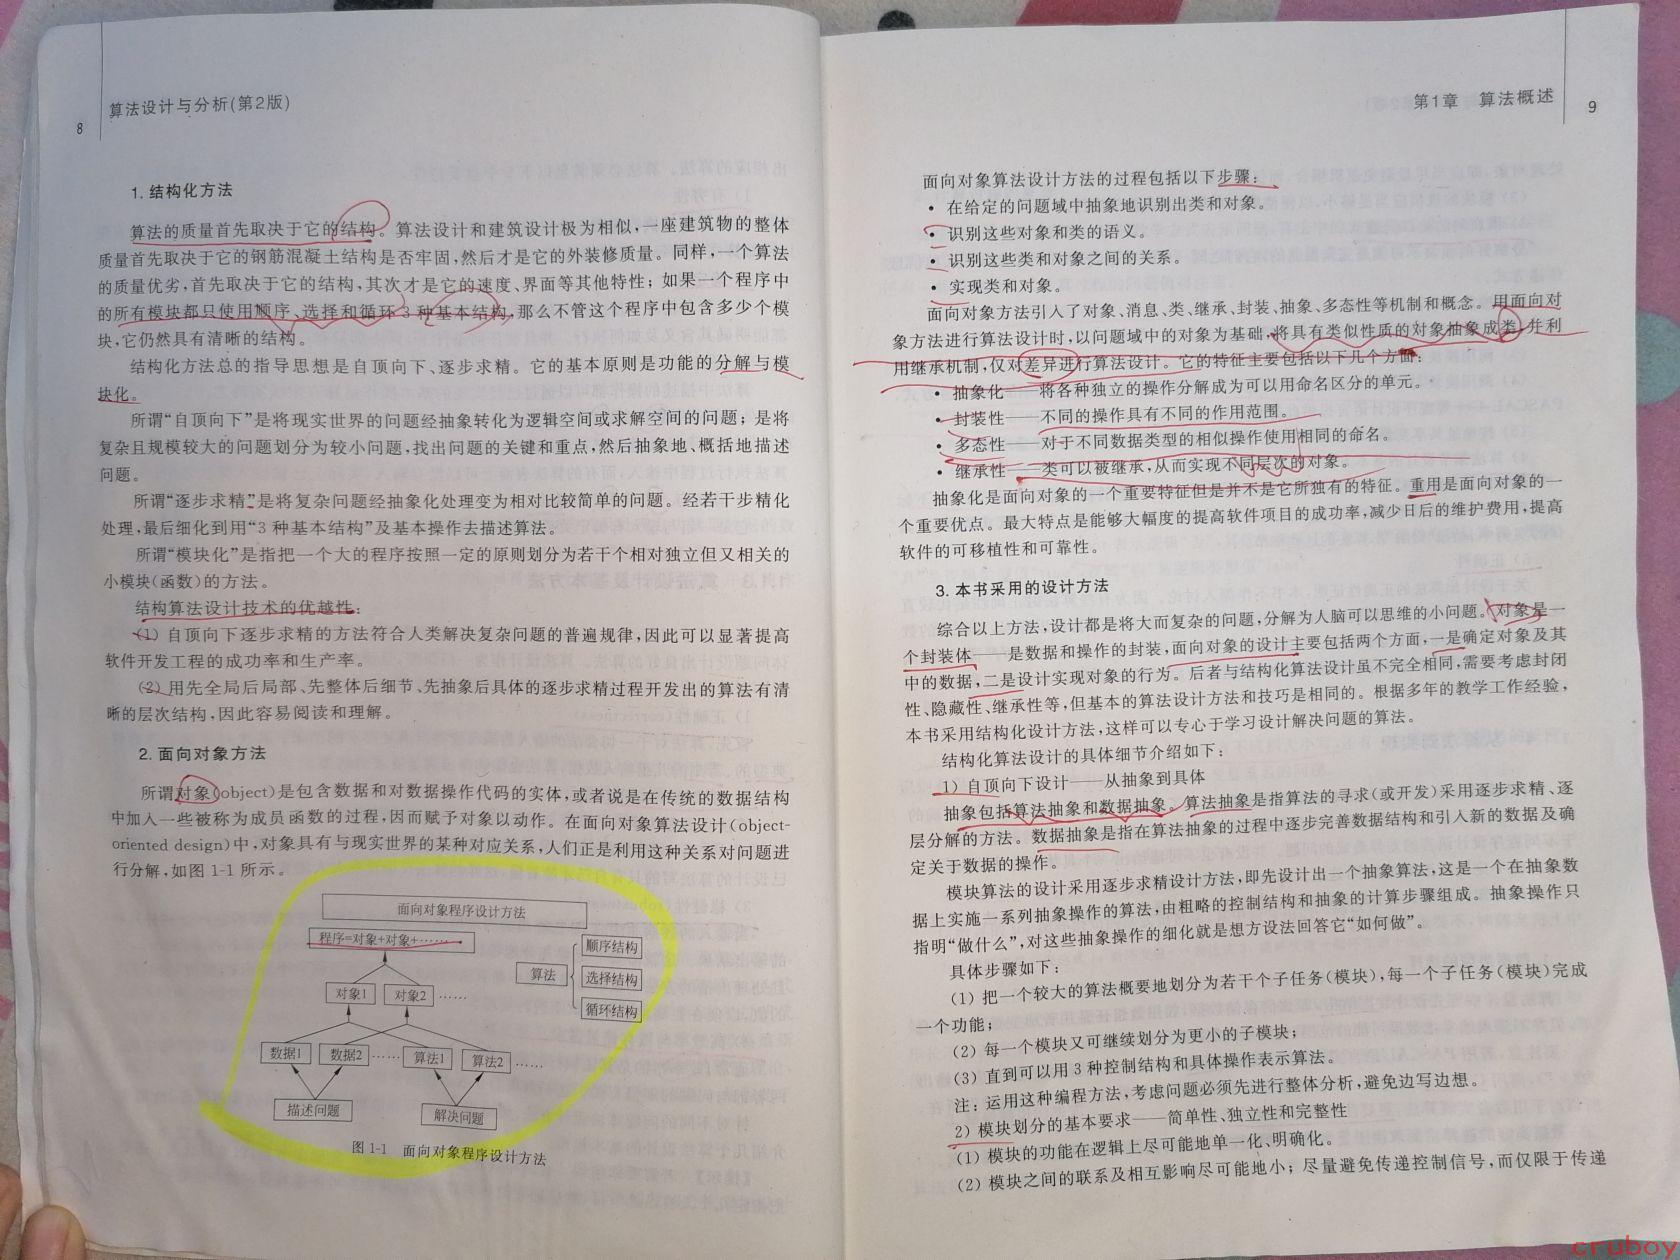 8
算法设计与分析(第2版)
1. 结构化方法
算法的质量首先取决于它的结构。算法设计和建筑设计极为相似,一座建筑物的整体
质量首先取决于它的钢筋混凝土结构是否牢固,然后才是它的外装修质量。同样,一个算法
的质量优劣,首先取决于它的结构,其次才是它的速度、界面等其他特性;如果一个程序中
的所有模块都只使用顺序、选择和循环3种基本结构,那么不管这个程序中包含多少个模
块,它仍然具有清晰的结构。
结构化方法总的指导思想是自顶向下、逐步求精。它的基本原则是功能的分解与模
块化。
所谓“自顶向下”是将现实世界的问题经抽象转化为逻辑空间或求解空间的问题;是将
复杂且规模较大的问题划分为较小问题,找出问题的关键和重点,然后抽象地、概括地描述
问题。
所谓“逐步求精”是将复杂问题经抽象化处理变为相对比较简单的问题。经若干步精化
处理,最后细化到用“3种基本结构”及基本操作去描述算法。
所谓“模块化”是指把一个大的程序按照一定的原则划分为若干个相对独立但又相关的
小模块(函数)的方法。
结构算法设计技术的优越性:
(1) 自顶向下逐步求精的方法符合人类解决复杂问题的普遍规律,因此可以显著提高
软件开发工程的成功率和生产率。
(2) 用先全局后局部、先整体后细节、先抽象后具体的逐步求精过程开发出的算法有清
晰的层次结构,因此容易阅读和理解。
2. 面向对象方法
所谓对象(object)是包含数据和对数据操作代码的实体,或者说是在传统的数据结构
中加入一些被称为成员函数的过程,因而赋予对象以动作。在面向对象算法设计(object-
oriented design)中,对象具有与现实世界的某种对应关系,人们正是利用这种关系对问题进
行分解,如图 1-1 所示。
面向对象程序设计方法
程序=对象+对象+……
顺序结构
算法
选择结构
循环结构
对象1
对象2
……
数据1
数据2
……
算法1
算法2
……
描述问题
解决问题
图 1-1 面向对象程序设计方法
第1章 算法概述
9
面向对象算法设计方法的过程包括以下步骤:
• 在给定的问题域中抽象地识别出类和对象。
• 识别这些对象和类的语义。
• 识别这些类和对象之间的关系。
• 实现类和对象。
面向对象方法引入了对象、消息、类、继承、封装、抽象、多态性等机制和概念。用面向对
象方法进行算法设计时,以问题域中的对象为基础,将具有类似性质的对象抽象成类,并利
用继承机制,仅对差异进行算法设计。它的特征主要包括以下几个方面:
• 抽象化——将各种独立的操作分解成为可以用命名区分的单元。
• 封装性——不同的操作具有不同的作用范围。
• 多态性——对于不同数据类型的相似操作使用相同的命名。
• 继承性——类可以被继承,从而实现不同层次的对象。
抽象化是面向对象的一个重要特征但是并不是它所独有的特征。重用是面向对象的一
个重要优点。最大特点是能够大幅度的提高软件项目的成功率,减少日后的维护费用,提高
软件的可移植性和可靠性。
3. 本书采用的设计方法
综合以上方法,设计都是将大而复杂的问题,分解为人脑可以思维的小问题。对象是一
个封装体——是数据和操作的封装,面向对象的设计主要包括两个方面,一是确定对象及其
中的数据,二是设计实现对象的行为。后者与结构化算法设计虽不完全相同,需要考虑封闭
性、隐藏性、继承性等,但基本的算法设计方法和技巧是相同的。根据多年的教学工作经验,
本书采用结构化设计方法,这样可以专心于学习设计解决问题的算法。
结构化算法设计的具体细节介绍如下:
1) 自顶向下设计——从抽象到具体
抽象包括算法抽象和数据抽象。算法抽象是指算法的寻求(或开发)采用逐步求精、逐
层分解的方法。数据抽象是指在算法抽象的过程中逐步完善数据结构和引入新的数据及确
定关于数据的操作。
模块算法的设计采用逐步求精设计方法,即先设计出一个抽象算法,这是一个在抽象数
据上实施一系列抽象操作的算法,由粗略的控制结构和抽象的计算步骤组成。抽象操作只
指明“做什么”,对这些抽象操作的细化就是想方设法回答它“如何做”。
具体步骤如下:
(1) 把一个较大的算法概要地划分为若干个子任务(模块),每一个子任务(模块)完成
一个功能;
(2) 每一个模块又可继续划分为更小的子模块;
(3) 直到可以用3种控制结构和具体操作表示算法。
注:运用这种编程方法,考虑问题必须先进行整体分析,避免边写边想。
2) 模块划分的基本要求——简单性、独立性和完整性
(1) 模块的功能在逻辑上尽可能地单一化、明确化。
(2) 模块之间的联系及相互影响尽可能地小;尽量避免传递控制信号,而仅限于传递
cruboy